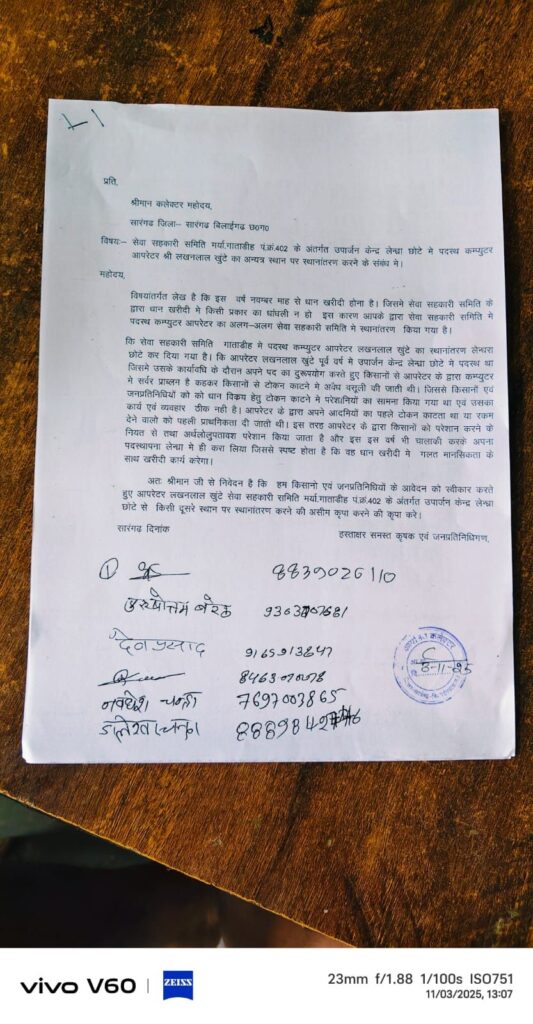 प्रति,
श्रीमान कलेक्टर महोदय,
सारंगढ जिला– सारंगढ बिलाईगढ छ०ग०
विषयः– सेवा सहकारी समिति मर्या.गाताडीह पं.क्र.402 के अंतर्गत उपार्जन केन्द्र लेन्ध्रा छोटे मे पदस्थ कम्प्युटर
आपरेटर श्री लखनलाल खुंटे का अन्यत्र स्थान पर स्थानांतरण करने के संबंध मे।
महोदय,
विषयांतर्गत लेख है कि इस वर्ष नवम्बर माह से धान खरीदी होना है। जिसमे सेवा सहकारी समिति के
द्वारा धान खरीदी मे किसी प्रकार का धांधली न हो इस कारण आपके द्वारा सेवा सहकारी समिति मे
पदस्थ कम्प्युटर आपरेटर का अलग–अलग सेवा सहकारी समिति मे स्थानांतरण किया गया है।
कि सेवा सहकारी समिति गाताडीह मे पदस्थ कम्प्युटर आपरेटर लखनलाल खुंटे का स्थानांतरण लेन्धरा
छोटे कर दिया गया है। कि आपरेटर लखनलाल खुंटे पूर्व वर्ष मे उपार्जन केन्द्र लेन्ध्रा छोटे मे पदस्थ था
जिसमे उसके कार्यवधि के दौरान अपने पद का दुरूपयोग करते हुए किसानो से आपरेटर के द्वारा कम्प्युटर
मे सर्वर प्राब्लन है कहकर किसानो से टोकन काटने मे अवैध वसूली की जाती थी। जिससे किसानों एवं
जनप्रतिनिधियों को को धान विक्रय हेतु टोकन काटने मे परेशानियों का सामना किया गया था एवं उसका
कार्य एवं व्यवहार ठीक नही है। आपरेटर के द्वारा अपने आदमियों का पहले टोकन काटता था या रकम
देने वालो को पहली प्राथमिकता दी जातो थी। इस तरह आपरेटर के द्वारा किसानों को परेशान करने के
नियत से तथा अर्थलोलुपतावश परेशान किया जाता है और इस इस वर्ष भी चालाकी करके अपना
पदस्थापना लेन्ध्रा मे ही करा लिया जिससे स्पष्ट होता है कि वह धान खरीदी मे गलत मानसिकता के
साथ खरीदी कार्य करेगा।
अतः श्रीमान जी से निवेदन है कि हम किसानो एवं जनप्रतिनिधियों के आवेदन को स्वीकार करते
हुए आपरेटर लखनलाल खुंटे सेवा सहकारी समिति मर्या.गाताडीह पं.क्र.402 के अंतर्गत उपार्जन केन्द्र लेन्ध्रा
छोटे से किसी दूसरे स्थान पर स्थानांतरण करने की असीम कृपा करने की कृपा करे।
सारंगढ दिनांक
हस्ताक्षर समस्त कृषक एवं जनप्रतिनिधिगण,
① 8839026110
पुरुषोत्तम बरेठ
देव प्रसाद 9165913847
8463070078
अवधेश चन्द्रा 7697003865
vivo V60 | ZEISS
23mm f/1.88 1/100s ISO751
11/03/2025, 13:07